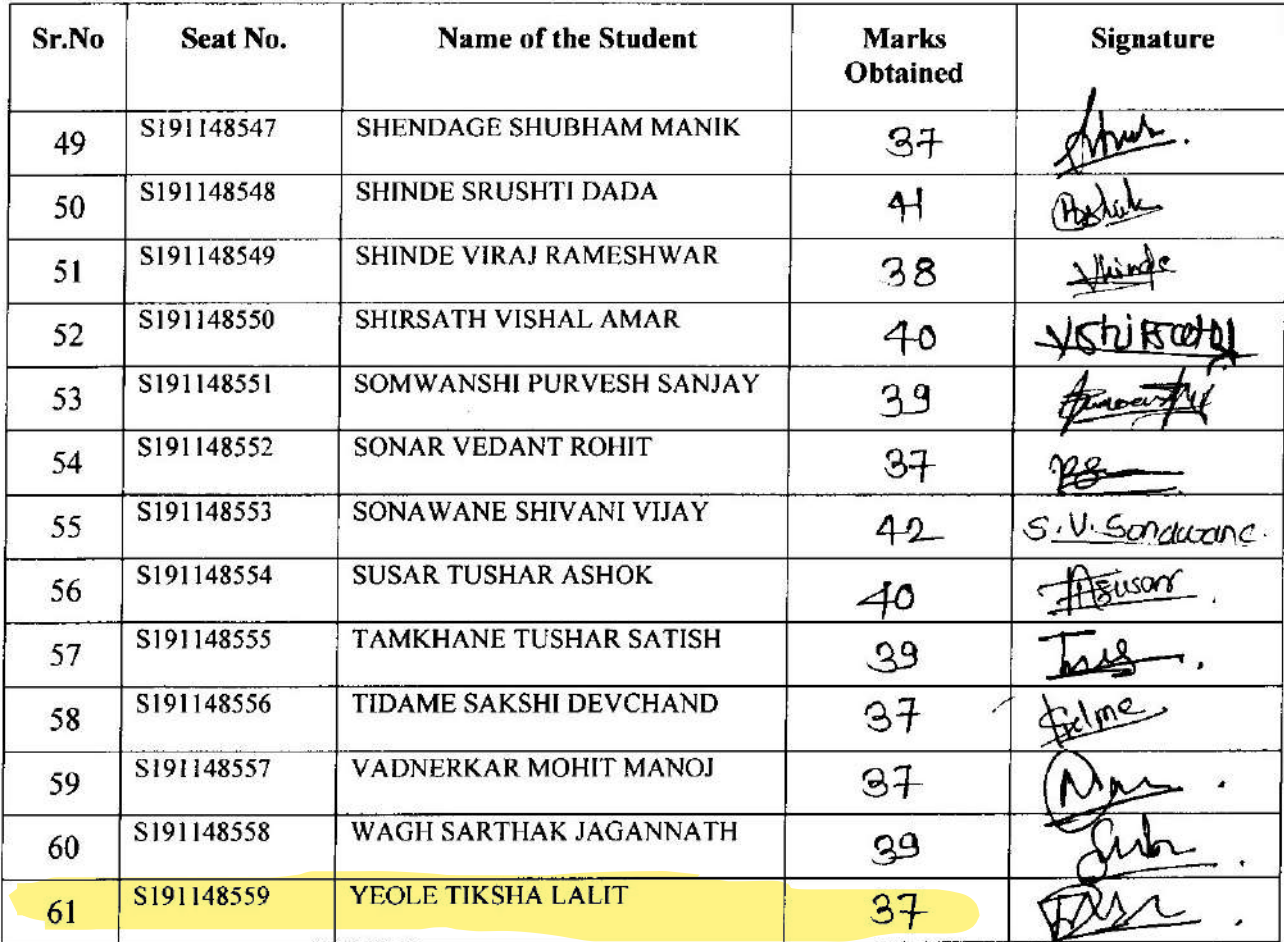 Sr.No Seat No. Name of the Student Marks Obtained Signature
49 S191148547 SHENDAGE SHUBHAM MANIK 37
50 S191148548 SHINDE SRUSHTI DADA 41
51 S191148549 SHINDE VIRAJ RAMESHWAR 38 VShinde
52 S191148550 SHIRSATH VISHAL AMAR 40
53 S191148551 SOMWANSHI PURVESH SANJAY 39
54 S191148552 SONAR VEDANT ROHIT 37
55 S191148553 SONAWANE SHIVANI VIJAY 42 S.V. Sonawane.
56 S191148554 SUSAR TUSHAR ASHOK 40
57 S191148555 TAMKHANE TUSHAR SATISH 39
58 S191148556 TIDAME SAKSHI DEVCHAND 37
59 S191148557 VADNERKAR MOHIT MANOJ 37
60 S191148558 WAGH SARTHAK JAGANNATH 39
61 S191148559 YEOLE TIKSHA LALIT 37